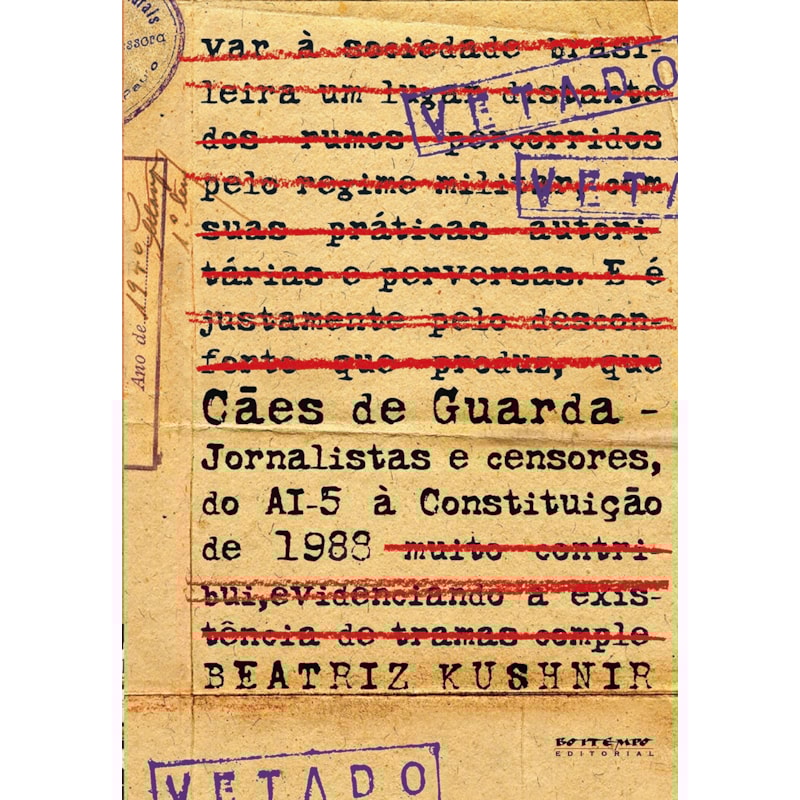 urais
ssora
Paulo
var à sociedade brasi-
leira um lugar distante
dos rumos percorridos
pelo regime militar, com
suas práticas autori-
tárias e perversas. E é
justamente pelo descon-
forto que produz, que
Cães de Guarda –
Jornalistas e censores,
do AI-5 à Constituição
de 1988 muito contri-
bui, evidenciando a exis-
tência de tramas comple
BEATRIZ KUSHNIR
VETADO
VETA
Ano de 19
1º
BOITEMPO
EDITORIAL
VETADO